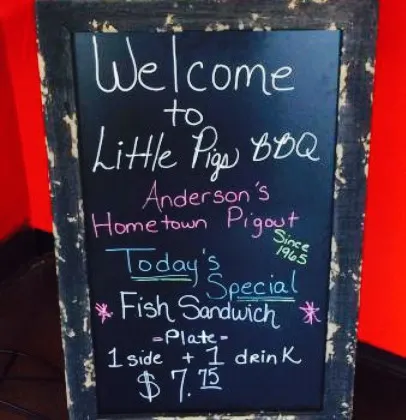 Welcome
to
Little Pigs BBQ
Anderson's
Hometown Pigout
Since
1965
Today's
Special
Fish Sandwich
-Plate-
1 side + 1 drink
$7.75